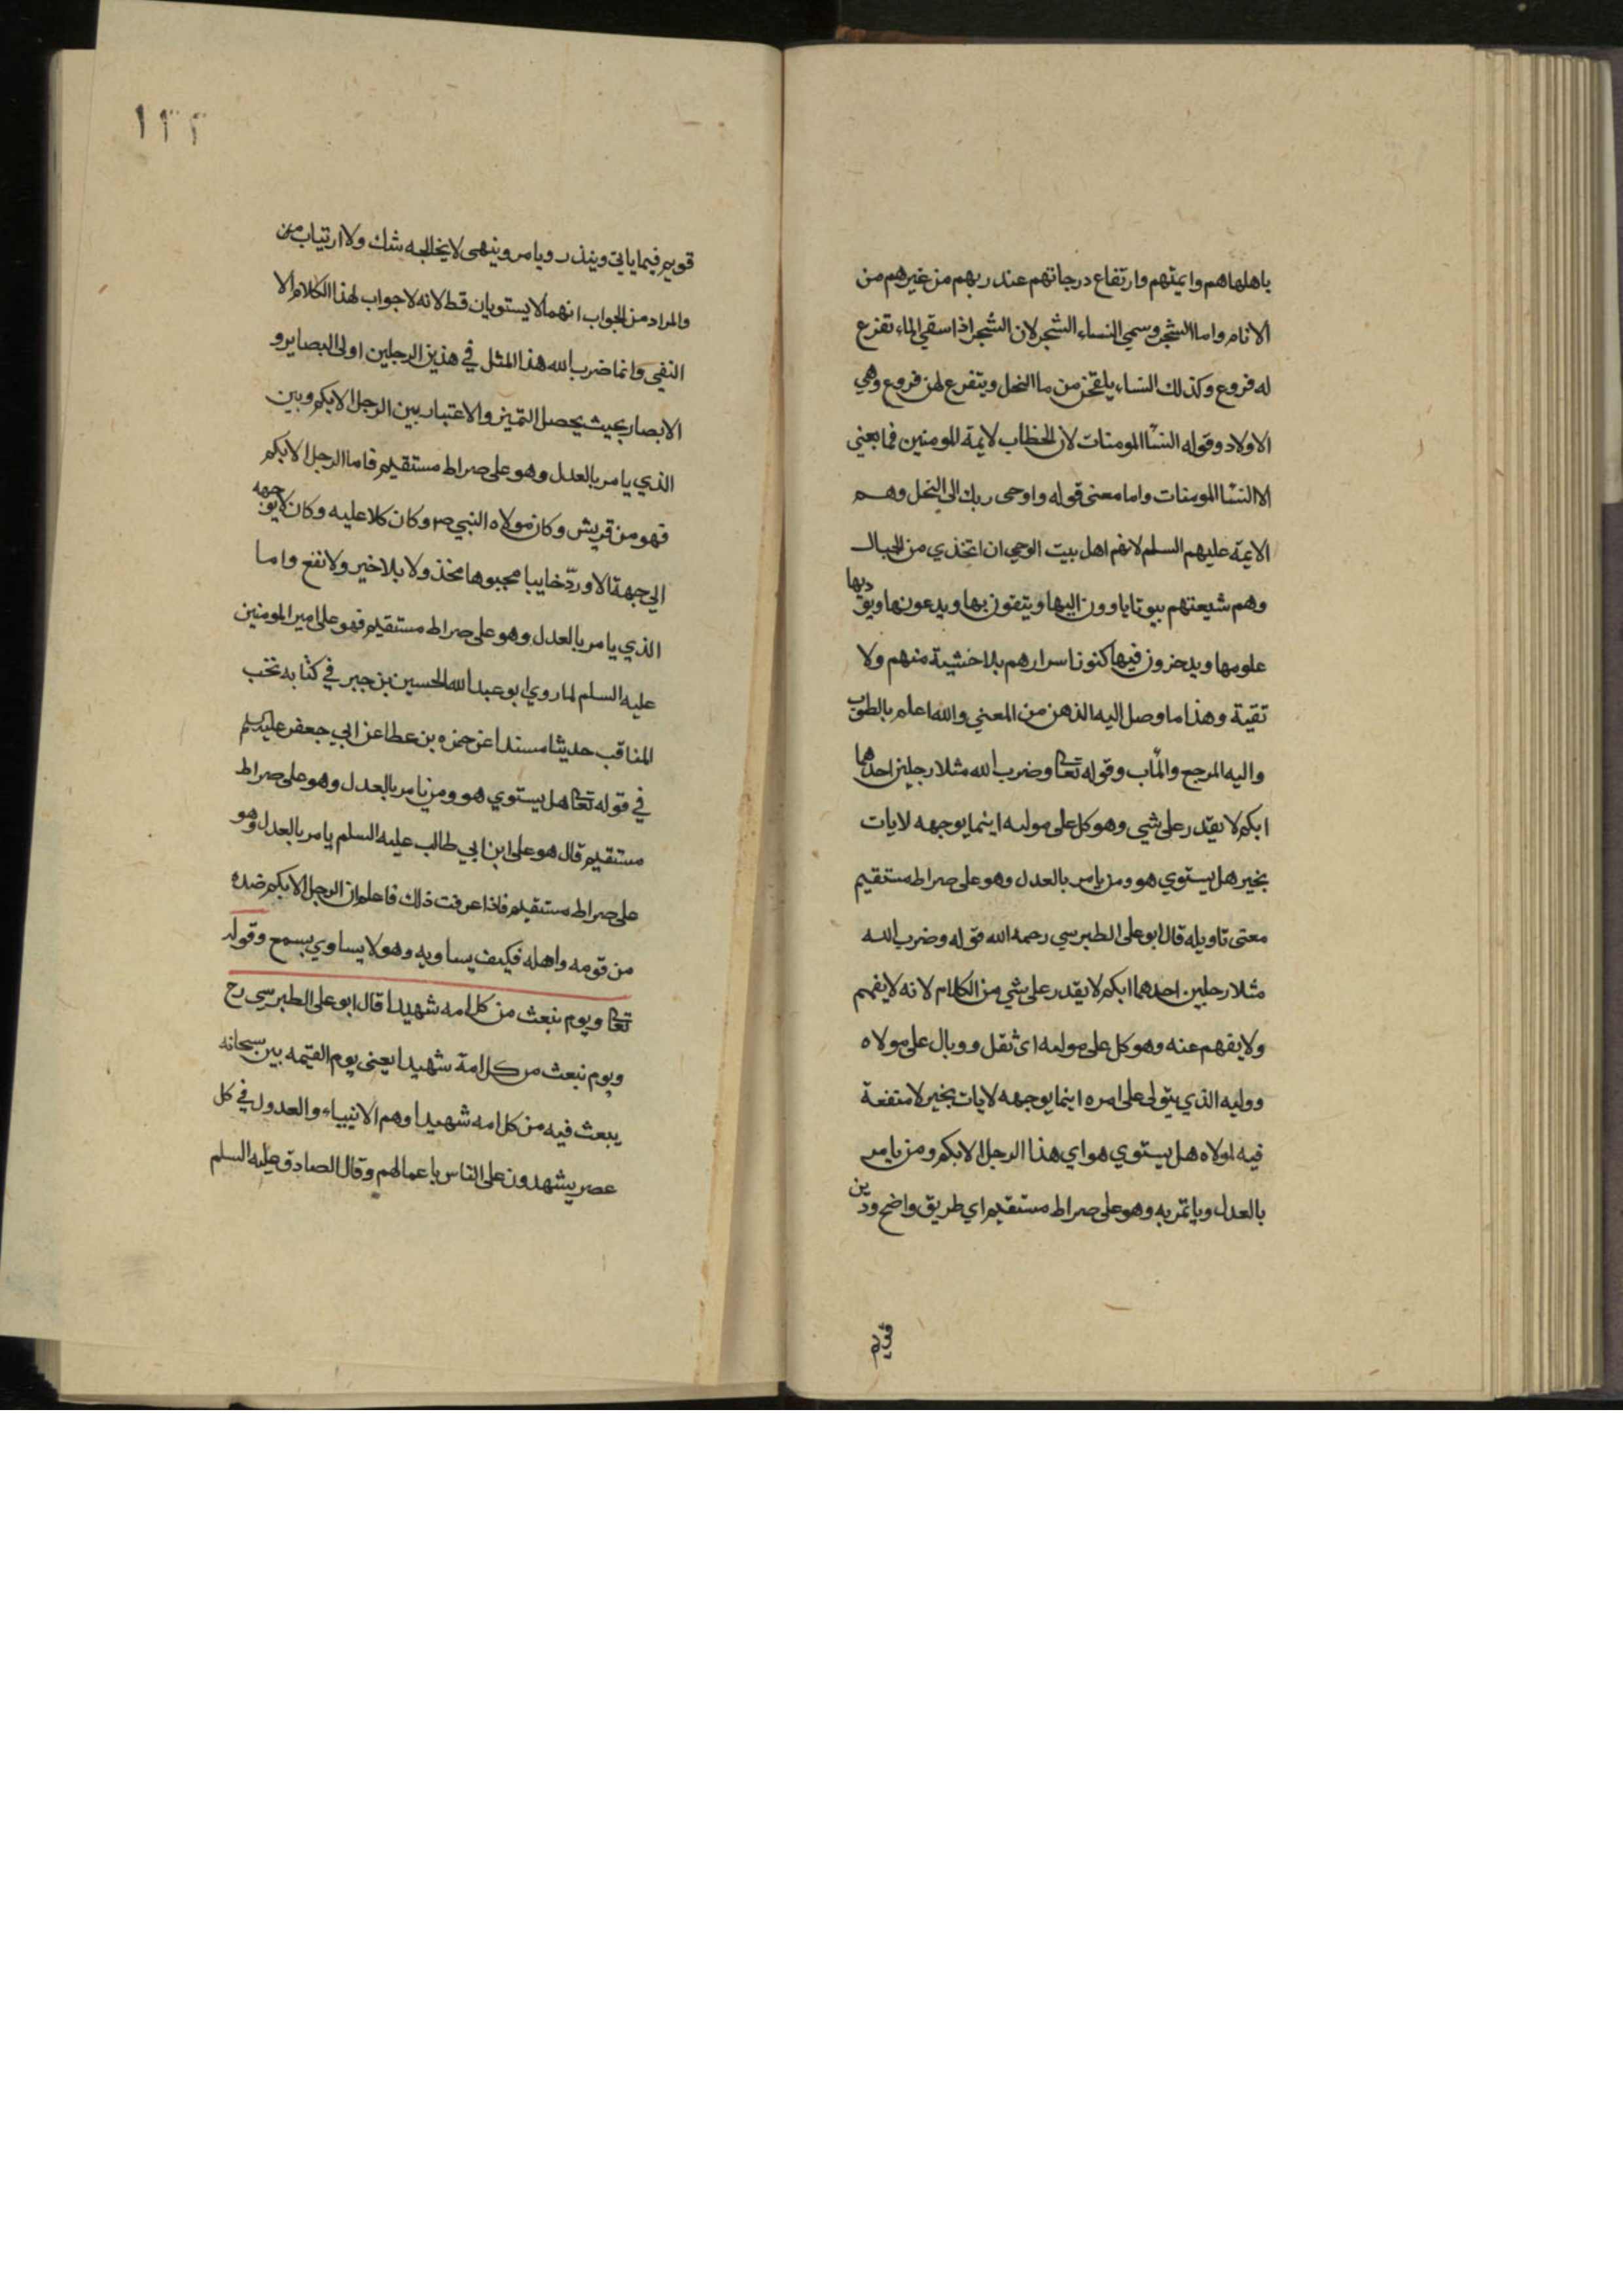 باهلها هم وايمتهم وارتفاع درجاتهم عند ربهم من غيرهم من
الانام واما الشجر وسمي النساء الشجر لان الشجر اذا سقي الماء تفزع
له فروع وكذلك النساء يلقحن من ما النحل ويتفرع لهن فروع وهي
الاولاد وقوله النسآ المومنات لان الخطاب لايمة المومنين فما يعني
الا النسآ المومنات واما معنى قوله واوحى ربك الى النحل وهم
الايمة عليهم السلم لانهم اهل بيت الوحي ان اتخذي من الجبال
وهم شيعتهم بيوتا ياوون اليها ويتقون بها ويدعونها ويودّيها
علومها ويدحزون فيها كنوز اسرارهم بلا خشية منهم ولا
تقية وهذا ما وصل اليه الذهن من المعني والله اعلم بالصوب
واليه المرجع والمآب وقوله تعا وضرب الله مثلا رجلين احدهما
ابكم لا يقدر على شي وهو كل على موليه اينما يوجهه لايات
بخير هل يستوي هو ومن يامر بالعدل وهو على صراط مستقيم
معنى تاويله قال ابو على الطبرسي رحمه الله قوله وضرب الله
مثلا رجلين احدهما ابكم لا يقدر على شي من الكلام لانه لا يفهم
ولا يفهم عنه وهو كل على موليه اى ثقل ووبال على مولاه
ووليه الذي يتولى على امره اينما يوجهه لايات بخير لا منفعة
فيه لمولاه هل يستوي هو اي هذا الرجل الابكم ومن يامر
بالعدل وياتمر به وهو على صراط مستقيم اي طريق واضح ودين
قويم
١٣٣
قويم فيما ياتي ويذر ويامر وينهى لا يخالجه شك ولا ارتياب من
والمراد من الجواب انهما لا يستويان قط لانه لا جواب لهذا الكلام الا
النفي وانما ضرب الله هذا المثل في هذين الرجلين اولى البصاير و
الابصار بحيث يحصل التميز والاعتبار بين الرجل الابكم وبين
الذي يامر بالعدل وهو على صراط مستقيم فاما الرجل الابكم
فهو من قريش وكان مولاه النبي ص وكان كلا عليه وكان لا يوجهه
الي جهة الا وردّ خايبا محبوها مخذولا بلا خير ولا نفع واما
الذي يامر بالعدل وهو على صراط مستقيم فهو علي امير المومنين
عليه السلم لما روي ابو عبد الله الحسين بن جبر في كتابه نخب
المناقب حديثا مسندا عن حمزه بن عطا عن ابي جعفر عليه السلم
في قوله تعا هل يستوي هو ومن يامر بالعدل وهو على صراط
مستقيم قال هو على ابن ابي طالب عليه السلم يامر بالعدل وهو
على صراط مستقيم فاذا عرفت ذلك فاعلم ان الرجل الابكم ضده
من قومه واهله فكيف يساويه وهو لا يساوي بسمح وقوله
تعا ويوم نبعث من كل امه شهيدا قال ابو على الطبرسي رح
ويوم نبعث من كل امة شهيدا يعنى يوم القيمه بين سبحانه
يبعث فيه من كل امه شهيدا وهم الانبياء والعدول في كل
عصر يشهدون على الناس باعمالهم وقال الصادق عليه السلم